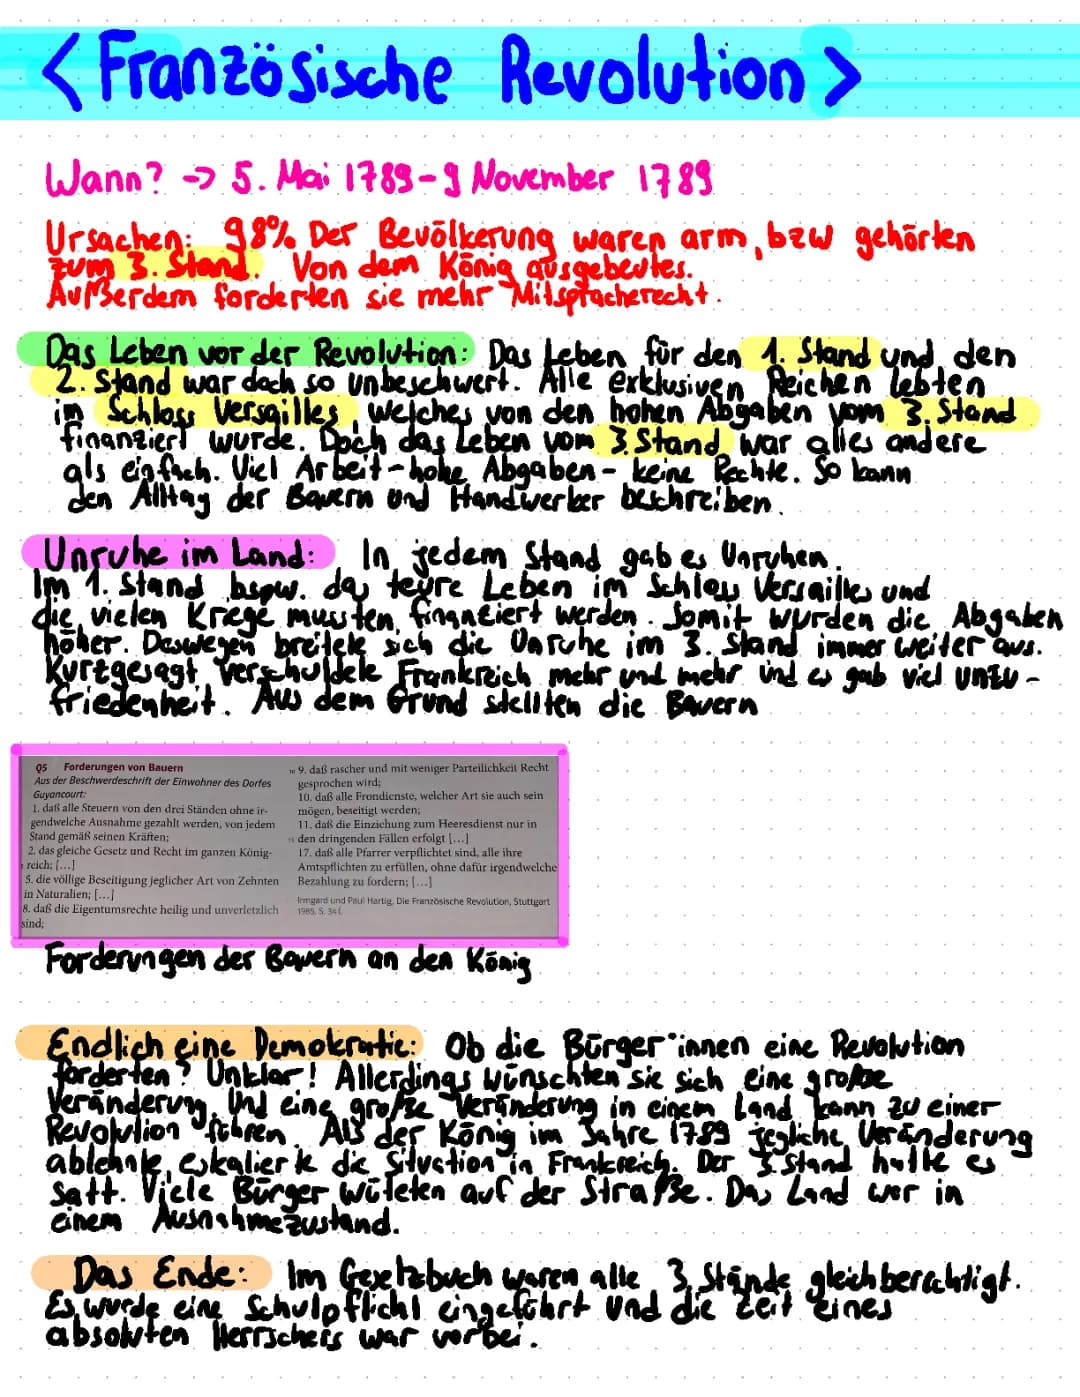 <Französische Revolution>
Wann? -> 5. Mai 1789-9 November 1789
Ursachen: 98% Der Bevölkerung waren arm, bzw gehörten
zum 3. Stand. Von dem König ausgebeutes.
Außerdem forderten sie mehr Mitspracherecht.
Das Leben vor der Revolution: Das Leben für den 1. Stand und den
2. Stand war doch so unbeschwert. Alle exklusiven Reichen lebten
im Schloss Versailles, welches von den hohen Abgaben vom 3. Stand
finanziert wurde. Doch das Leben vom 3. Stand war alles andere
als einfach. Viel Arbeit-hohe Abgaben- keine Rechte. So kann
den Alltag der Bauern und Handwerker beschreiben.
Unruhe im Land: In jedem Stand gab es Unruhen.
Im 1. Stand bspw. das teure Leben im Schloss Versailles und
die vielen Krege mussten finanziert werden. Somit wurden die Abgaben
höher. Deswegen breitete sich die Unruhe im 3. Stand immer weiter aus.
Kurzgesagt verschuldete Frankreich mehr und mehr und es gab viel unzu-
friedenheit. Aus dem Grund stellten die Bauern
Q5 Forderungen von Bauern
Aus der Beschwerdeschrift der Einwohner des Dorfes
Guyancourt:
1. daß alle Steuern von den drei Ständen ohne ir-
gendwelche Ausnahme gezahlt werden, von jedem
Stand gemäß seinen Kräften;
2. das gleiche Gesetz und Recht im ganzen König-
reich; [...]
5. die völlige Beseitigung jeglicher Art von Zehnten
in Naturalien; [...]
8. daß die Eigentumsrechte heilig und unverletzlich
sind;
9. daß rascher und mit weniger Parteilichkeit Recht
gesprochen wird;
10. daß alle Frondienste, welcher Art sie auch sein
mögen, beseitigt werden;
11. daß die Einziehung zum Heeresdienst nur in
den dringenden Fällen erfolgt [...]
17. daß alle Pfarrer verpflichtet sind, alle ihre
Amtspflichten zu erfüllen, ohne dafür irgendwelche
Bezahlung zu fordern; [...]
Irmgard und Paul Hartig, Die Französische Revolution, Stuttgart
1985, S. 34 f.
Forderungen der Bauern an den König
Endlich eine Demokratie: Ob die Bürger*innen eine Revolution
forderten? Unklar! Allerdings wünschten sie sich eine große
Veränderung. Und eine große Veränderung in einem Land kann zu einer
Revolution führen. Als der König im Jahre 1789 jegliche Veränderung
ablehnte, eskalierte die Situation in Frankreich. Der 3. Stand hatte es
satt. Viele Bürger wüteten auf der Straße. Das Land war in
einem Ausnahmezustand.
Das Ende: Im Gesetzbuch waren alle 3 Stände gleichberechtigt.
Es wurde eine Schulpflicht eingeführt und die Zeit eines
absoluten Herrschers war vorbei.